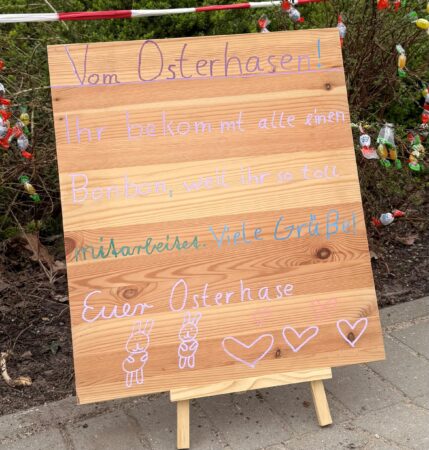 Vom Osterhasen!
Ihr bekommt alle einen
Bonbon, weil ihr so toll
mitarbeitet. Viele Grüße!
Euer Osterhase